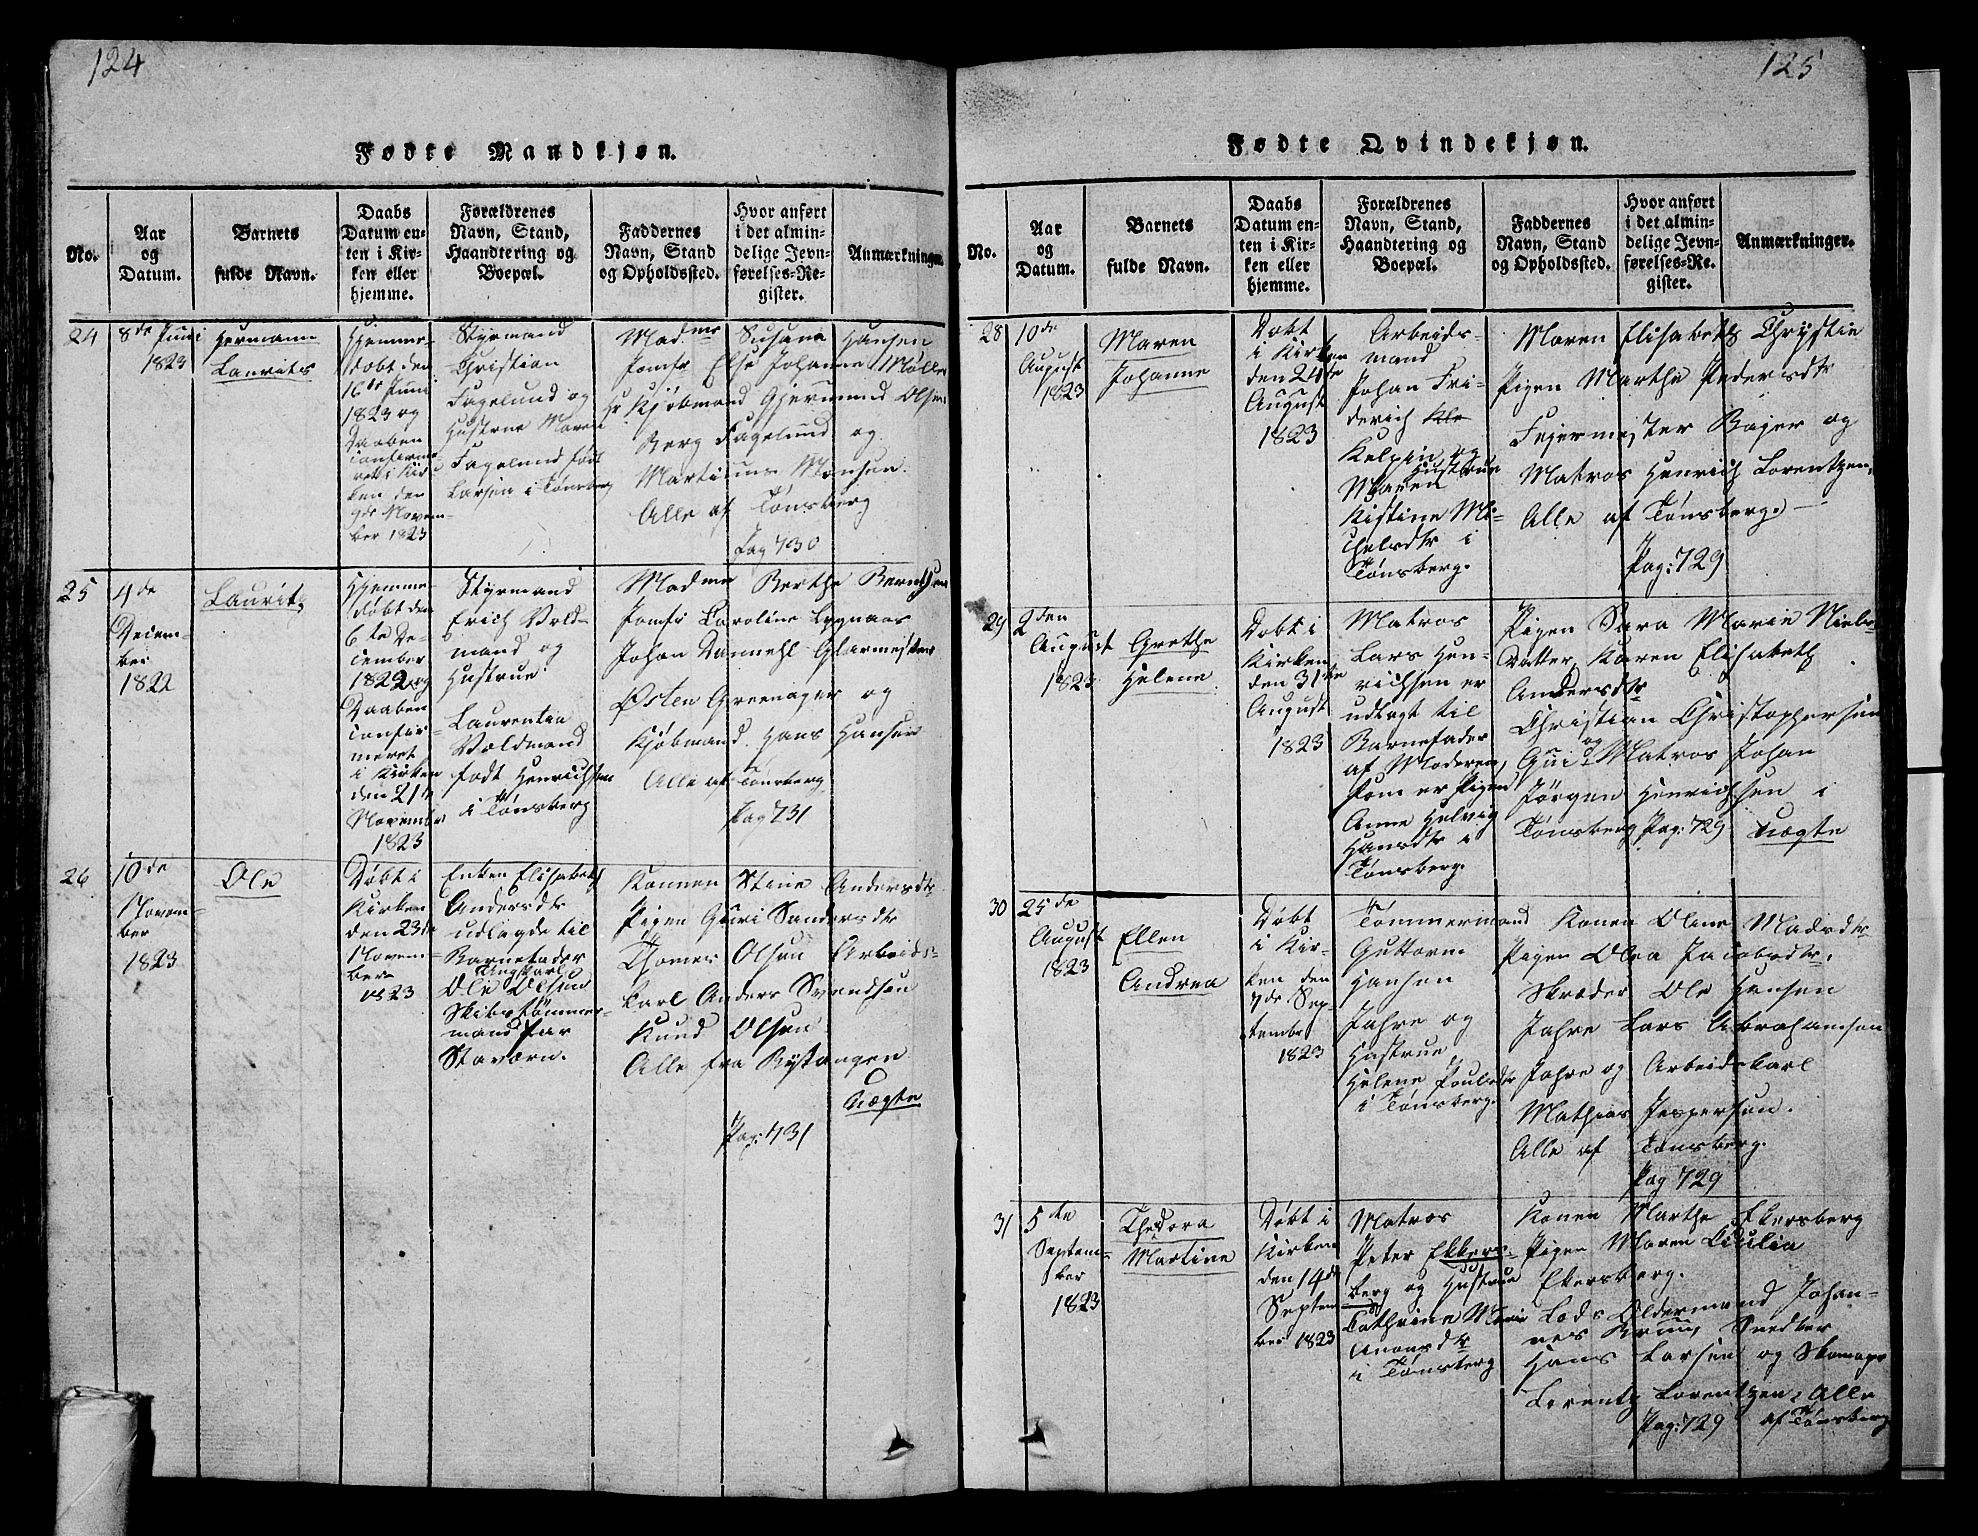 124
Fødte Mandkjøn.
No.
Aar
og
Datum.
Barnets
fulde Navn.
Daabs
Datum en-
ten i Kir-
ken eller
hjemme.
Forældrenes
Navn, Stand,
Haandtering og
Boepæl.
Faddernes
Navn, Stand
og Opholdssted.
Hvor anført
i det almin-
delige Jevn-
førelses-Re-
gister.
Anmærkninger.
24
8de Juni
1823
Hermann
Laurits
Hjemme-
døbt den
16de Juni
1823 og
Daaben
confirme-
ret i Kir-
ken den
9de Novem-
ber 1823
Styrmand
Christian
Fagelund og
Hustrue Maren
Fagelund født
Larsen i Tønsberg
Madme Susana Hansen
Jomfr Else Johanne Møller
Hr Kjøbmand Gjermund Olsen
Berg Fagelund og
Martinus Monsen.
Alle af Tønsberg
Pag 730
25
4de
Decem-
ber
1822
Lauritz
Hjemme-
døbt den
6te De-
cember
1822 og
Daaben
confir-
meret
i Kirken
den 21de
Novembr
1823
Styrmand
Erich Vold-
mand og
Hustrue
Laurentia
Voldmand
født Henrichsen
i Tønsberg
Madme Berthe Berndsen
Jomfr Caroline Lygnaas
Johan Dannehl Glarmester
Østen Greenager og
Kjøbmand Hans Hansen
Alle af Tønsberg
Pag 731
26
10de
Novem-
ber
1823
Ole
Døbt i
Kirken
den 23de
Novem-
ber
1823
Enken Elisabeth
Andersdtr
udlagde til
Barnefader
Ungkarl
Ole Olsen
Skibstømmer-
mand fra
Staværn.
Konnen Stine Andersdtr
Pigen Guri Sandersdtr
Thomes Olsen Arbeids-
karl Anders Svendsen
Knud Olsen
Alle fra Rystangen
Uægte
Pag: 731
125
Fødte Qvindekjøn.
No.
Aar
og
Datum.
Barnets
fulde Navn.
Daabs
Datum en-
ten i Kir-
ken eller
hjemme.
Forældrenes
Navn, Stand,
Haandtering og
Boepæl.
Faddernes
Navn, Stand
og Opholdssted.
Hvor anført
i det almin-
delige Jevn-
førelses-Re-
gister.
Anmærkninger.
28
10de
August
1823
Maren
Johanne
Døbt
i Kirken
den 24de
August
1823
Arbeids-
mand
Johan Fri-
derich Kle
Kelpin og
Hustrue
Maren
Kistine Mi-
chelsdtr i
Tønsberg.
Maren Elisabeth Chrystie
Pigen Marthe Pedersdtr
Fejermester Bajer og
Matros Henrich Lorentzen,
Alle af Tønsberg.
Pag: 729
29
2den
August
1823
Grethe
Helene
Døbt i
Kirken
den 31te
August
1823
Matros
Lars Hen-
richsen er
udlagt til
Barnefader
af Moderen,
som er Pigen
Anne Helvig
Hansdtr i
Tønsberg.
Pigen Sara Marie Niels-
Datter, Karen Elisabeth
Andersdtr
Christian Christophersen
og
Matros Johan
Jørgen Henrichsen i
Tønsberg Pag: 729 Uægte
30
25de
August
1823
Ellen
Andrea
Døbt
i Kir-
ken den
7de Sep-
tembr
1823
Tømmermand
Guttorm
Hansen
Jahre og
Hustrue
Helene Poulsdtr
i Tønsberg.
Konen Oline Madsdtr
Pigen Olea Jacobsdtr,
Skræder Ole Hensen
Jahre Lars Abrahamsen
Jahre og Arbeidskarl
Mathias Jespersen.
Alle af Tønsberg.
Pag 729
31
5te
Septem-
ber
1823
Thedora
Martine
Døbt i
Kirken
den 14de
Septem-
ber 1823
Matros
Peter Ekkers-
berg og Hustrue
Cathrine Marie
Anonsdtr
i Tønsberg
Konen Marthe Ekersberg
Pigen Maren Cicilia
Ekersberg.
Lods Oldermand Johan-
nes Bruun, Snedker
Hans Larsen og Skomager
Lorentz Lorentzen, Alle
Pag: 729 af Tønsberg